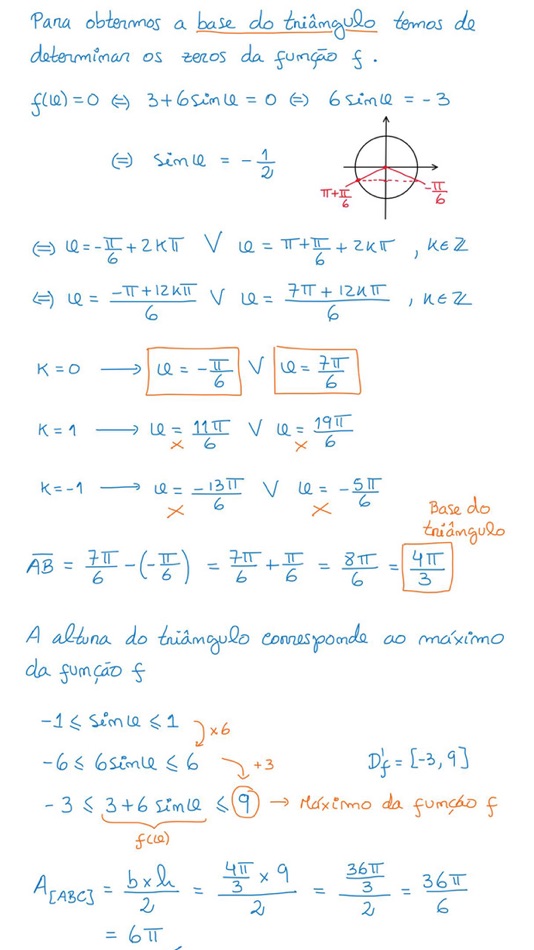 Para obtermos a base do triângulo temos de
determinar os zeros da função f.
f(x)=0 ⇔ 3+6sinx=0 ⇔ 6sinx = -3
⇔ sinx = -1/2
π+π/6
-π/6
⇔ x=-π/6+2kπ ∨ x = π+π/6+2kπ , k∈ℤ
⇔ x = (-π+12kπ)/6 ∨ x = (7π+12kπ)/6 , k∈ℤ
K=0 → x = -π/6 ∨ x = 7π/6
K=1 → x = 11π/6 ∨ x = 19π/6
× ×
K=-1 → x = -13π/6 ∨ x = -5π/6
× ×
Base do
triângulo
AB = 7π/6 - (-π/6) = 7π/6 + π/6 = 8π/6 = 4π/3
A altura do triângulo corresponde ao máximo
da função f
-1 ≤ sinx ≤ 1
×6
-6 ≤ 6sinx ≤ 6
+3
D'f = [-3, 9]
-3 ≤ 3+6 sinx ≤ 9 → Máximo da função f
f(x)
A[ABC] = (b×h)/2 = (4π/3 × 9)/2 = (36π/3)/2 = 36π/6
= 6π